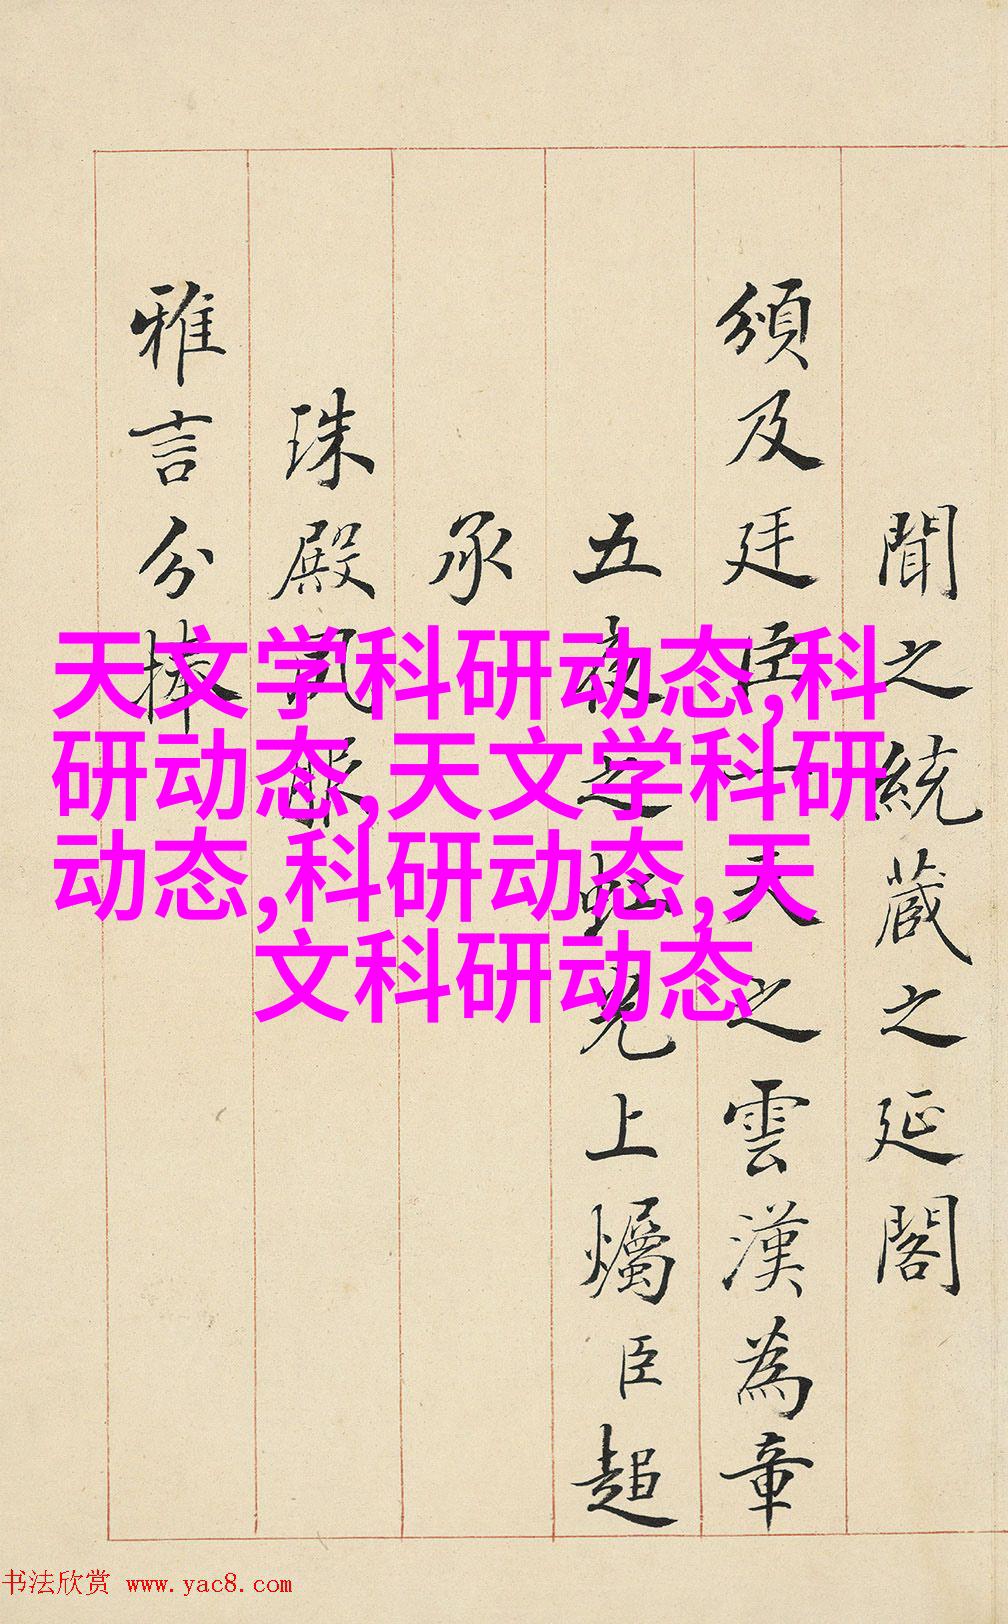 聞之統蔵之延閣
頒及廷臣一天之雲漢為章
五夜之虹光上爥臣超
承
珠殿風眼
雅言分捧
天文学科研动态,科
研动态,天文学科研
动态,科研动态,天
文科研动态
书法欣赏 www.yac8.com